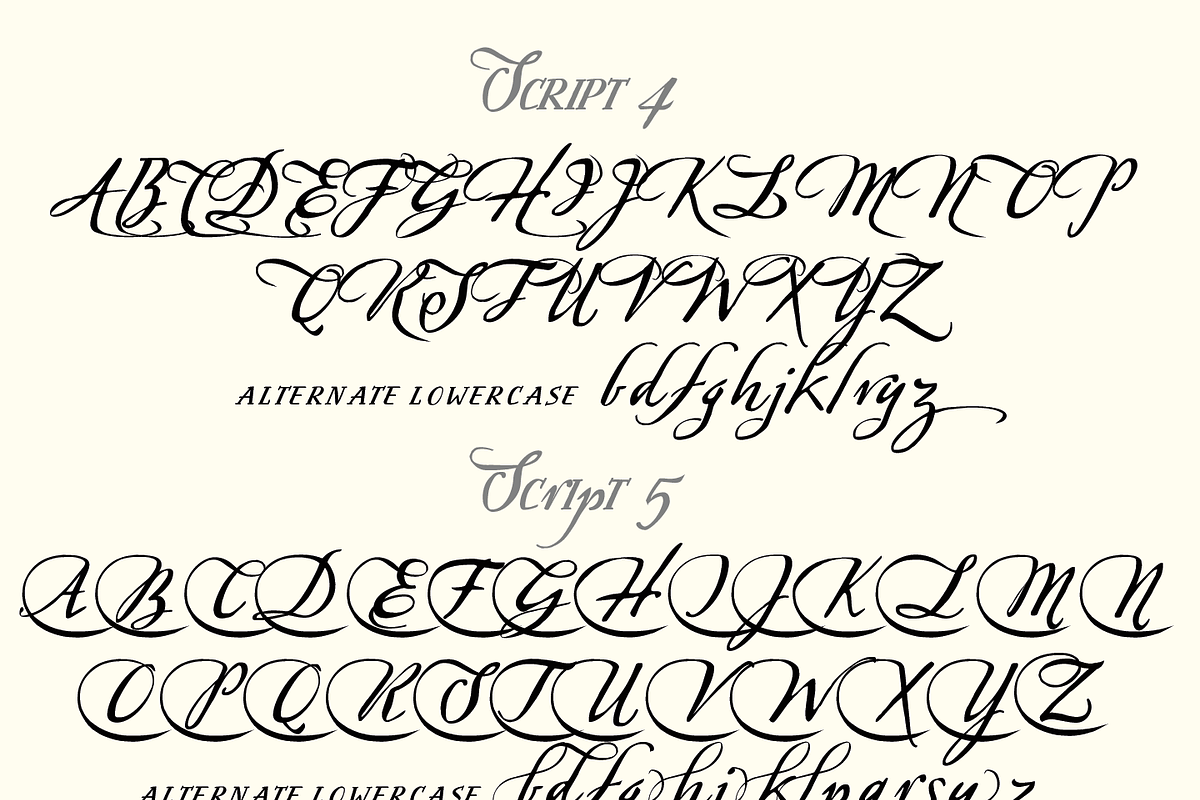 Script 4
ABCDEFGHIJKLMNOP
QRSTUVWXYZ
ALTERNATE LOWERCASE bdfghjklryz
Script 5
ABCDEFGHIJKLMN
OPQRSTUVWXYZ
ALTERNATE LOWERCASE bdfghjklpqrsyz